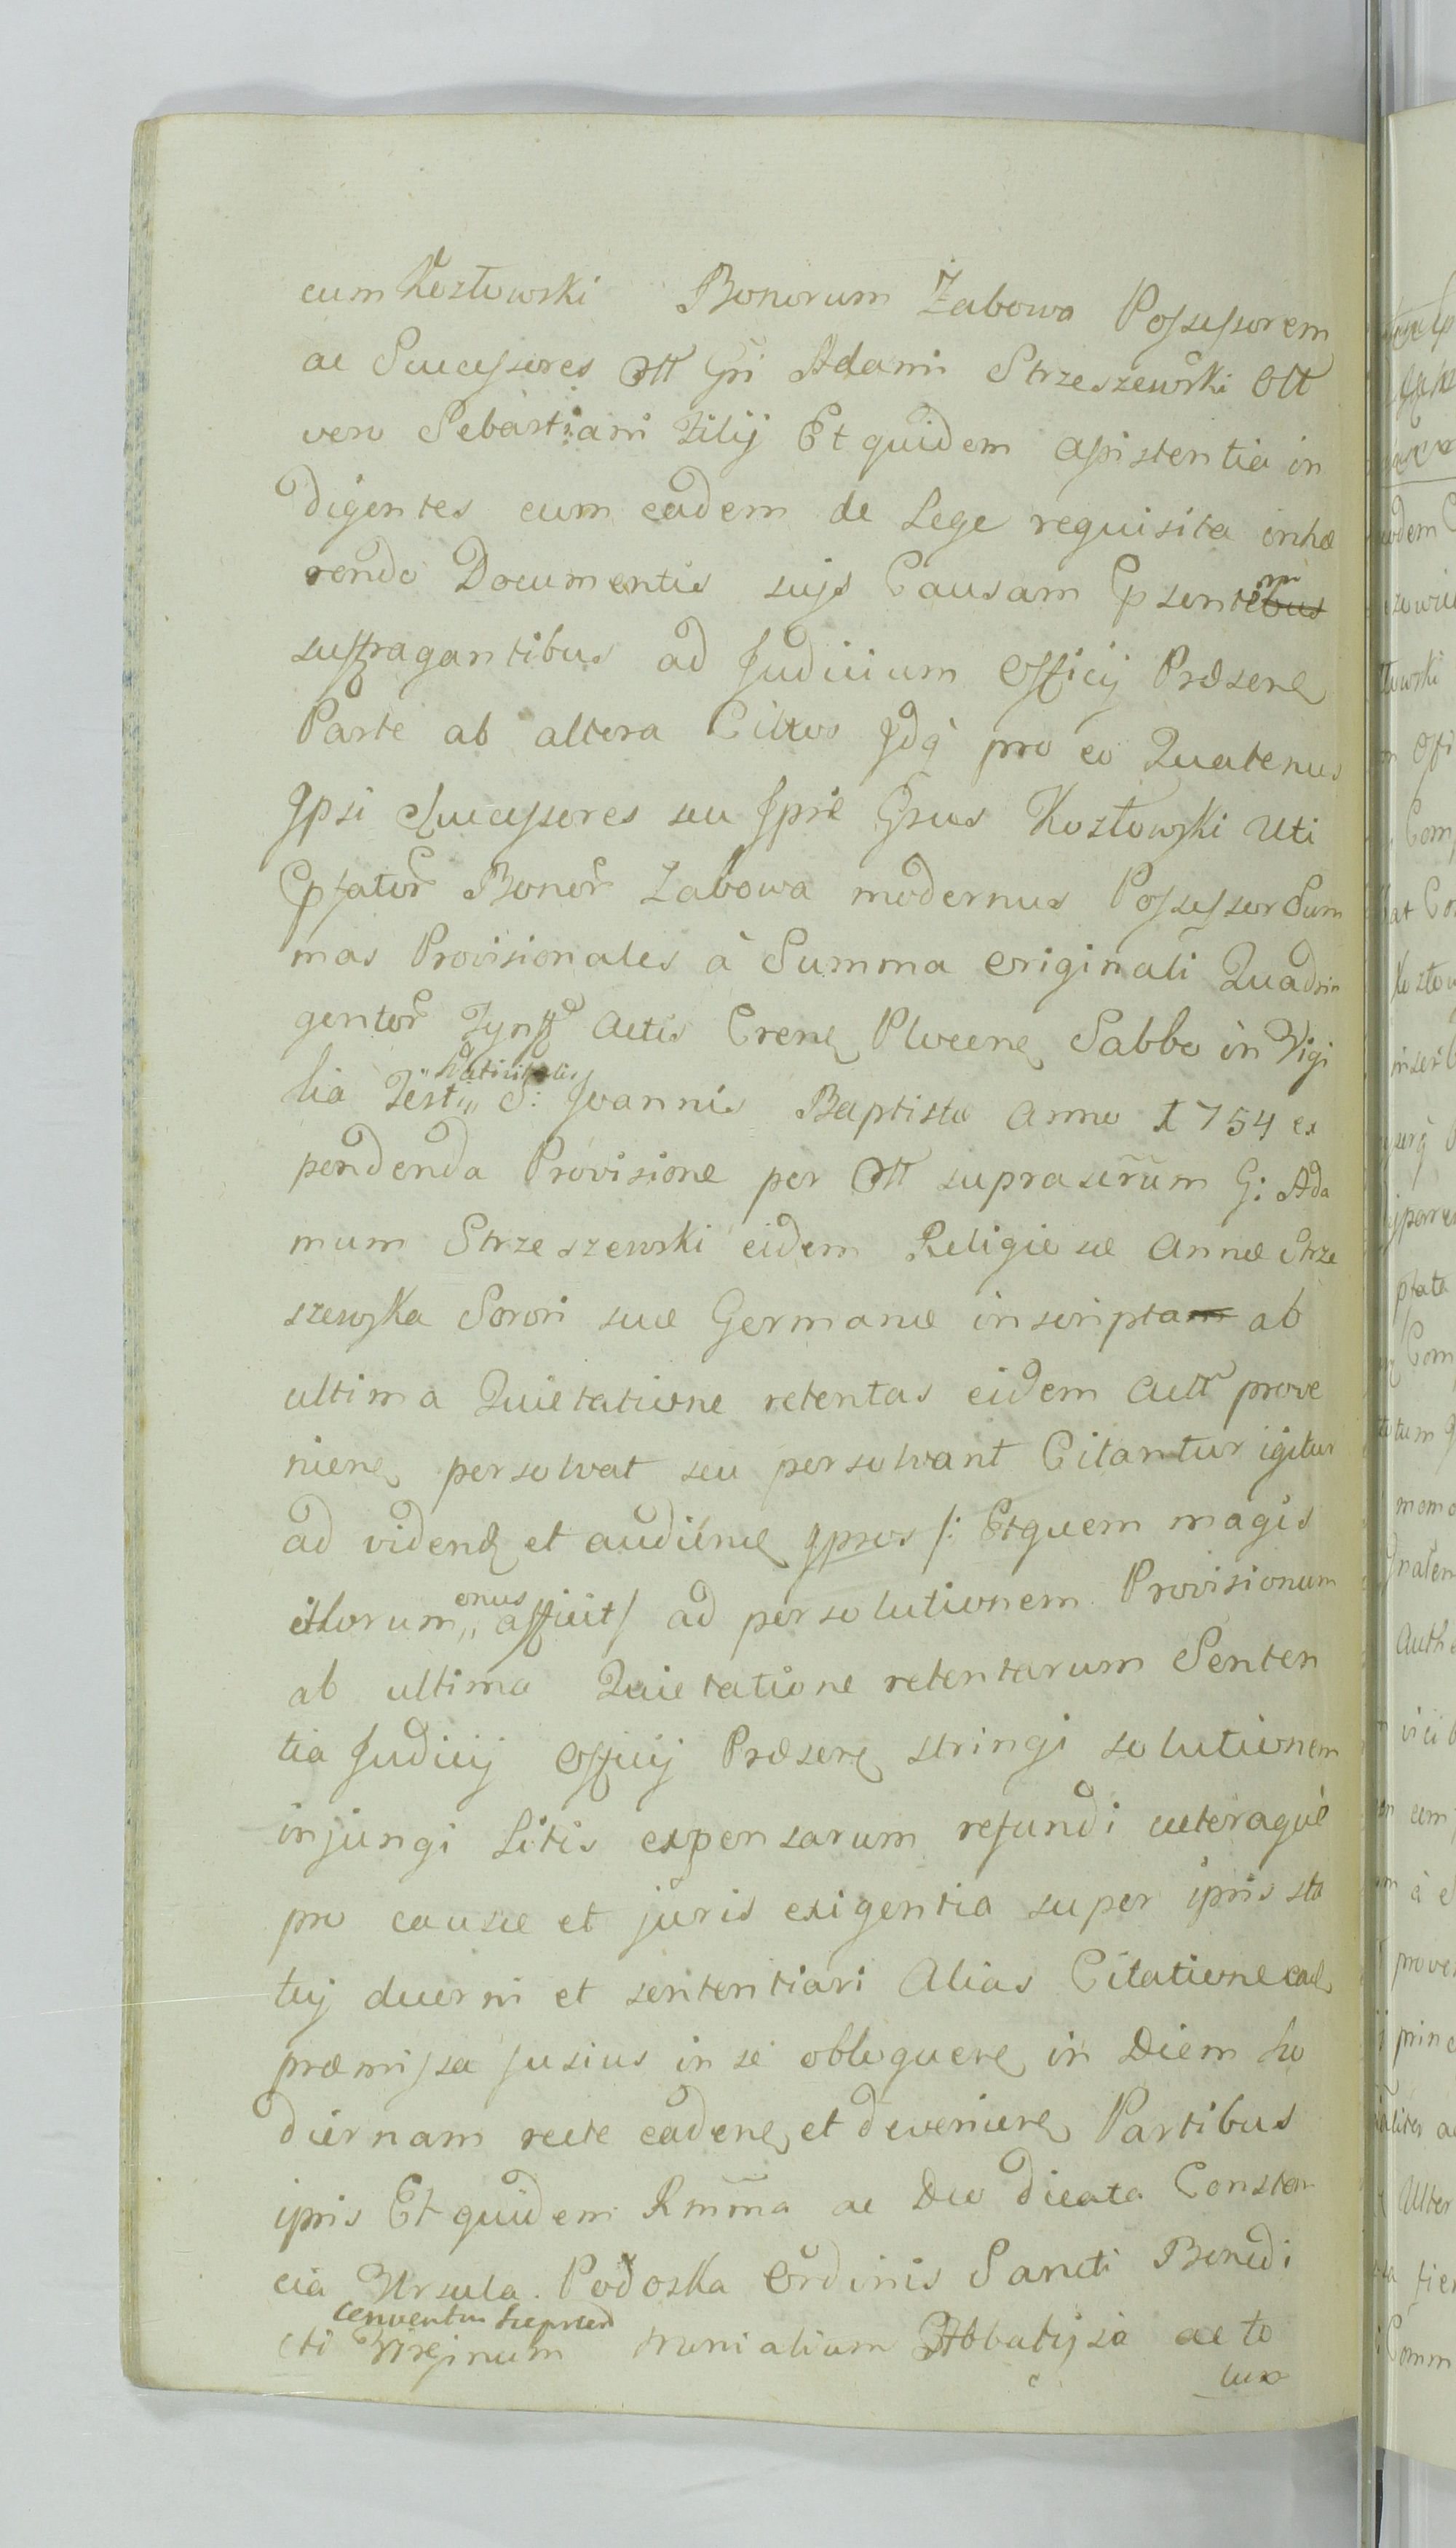 cum Kozłowski Bonorum Żabowo Possessorem
ac Successores Ołł Gñi Adami Strzeszewski Ołł
vero Sebastiani Filij Et quidem assistentia in
digentes cum eadem de Lege requisita inhæ
rendo Documentis sujs Causam Psentem
suffragantibus ad Judicium Officij Præsen
Parte ab altera Cittos Jdq pro eo Quatenus
Jpsi Successores seu Jpse Gñsus Kozłowski Uti
Pfator Bonor Zabowa modernus Possessor Sum
mas Provisionales à Summa originali Quadrin
gentor Tynff Actis Cren Plocen Sabbo in Vigi
lia Fest,, Nativitatis S: Joannis Baptistæ Anno 1754 ex
pendenda Provisione per Ołł suprascrum G: Ada
mum Strzeszewski eidem Religiosæ Annæ Strze
szewska Sorori suæ Germanæ inscripta ab
ultima Quietatione retentas eidem Actt prove
nien persolvat seu persolvant Citantur igitur
ad viden et audien ipsos /: Et quem magis
illorum,, onus afficit/ ad persolutionem Provisionum
ab ultima Quietatione retentarum Senten
tia Judicij Officij Præsen stringi solutionem
injungi Litis expensarum refundi cæteraque
pro causæ et juris exigentia super ipsis sta
tuj decerni et sententiari Alias Citatione ead
præmissa fusius in se obloquen in Diem ho
diernam recte caden et devenien Partibus
ipsis Et quidem Rmma ac Deo dicata Constan
cia Ursula Podoska Ordinis Sancti Benedi
cti Virginum Conventus Sieprcen Monialium Abbatissa ac to
tux